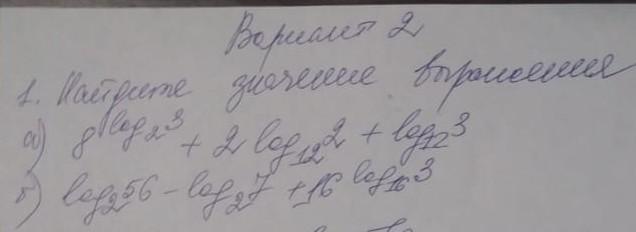 Вариант 2
1. Найдите значение выражения
а) 8^log₂3 + 2 log₁₂2 + log₁₂3
б) log₂56 - log₂7 + 16^log₁₆3